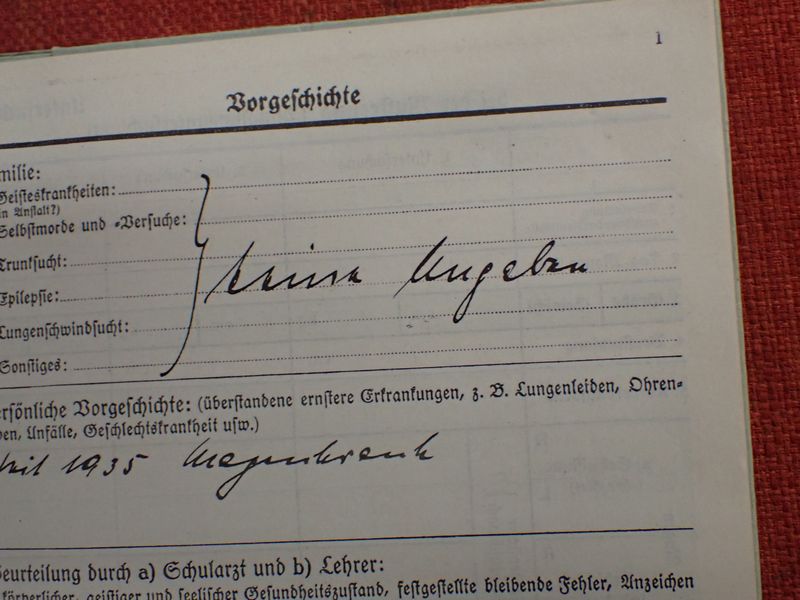 1
Vorgeschichte
milie:
Geisteskrankheiten:
in Anstalt?)
Selbstmorde und -Versuche:
Trunksucht:
keine Angaben
Epilepsie:
Lungenschwindsucht:
Sonstiges:
ersönliche Vorgeschichte: (überstandene ernstere Erkrankungen, z. B. Lungenleiden, Ohren-
en, Unfälle, Geschlechtskrankheit usw.)
1935 Magenkrank
Beurteilung durch a) Schularzt und b) Lehrer:
körperlicher, geistiger und seelischer Gesundheitszustand, festgestellte bleibende Fehler, Anzeichen